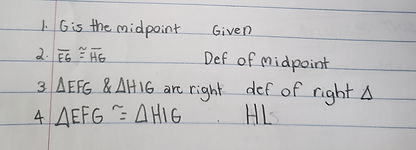 1. G is the midpoint Given
2. EG ≅ HG Def of midpoint
3 ΔEFG & ΔHIG are right def of right Δ
4 ΔEFG ≅ ΔHIG . HL